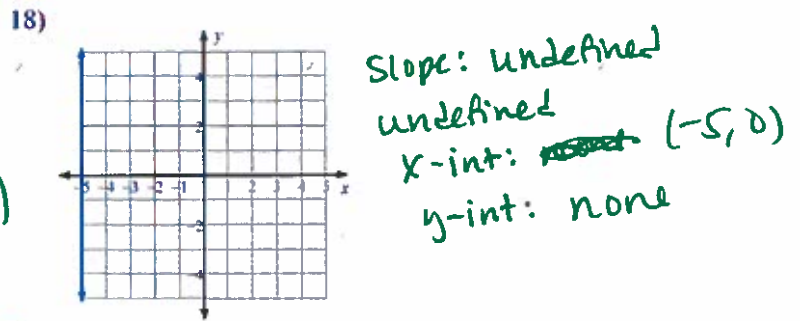 18)
y
4
2
-5 -4 -3 -2 -1 1 2 3 4 5 x
-2
-4
)
Slope: undefined
undefined
x-int: (-5, 0)
y-int: none